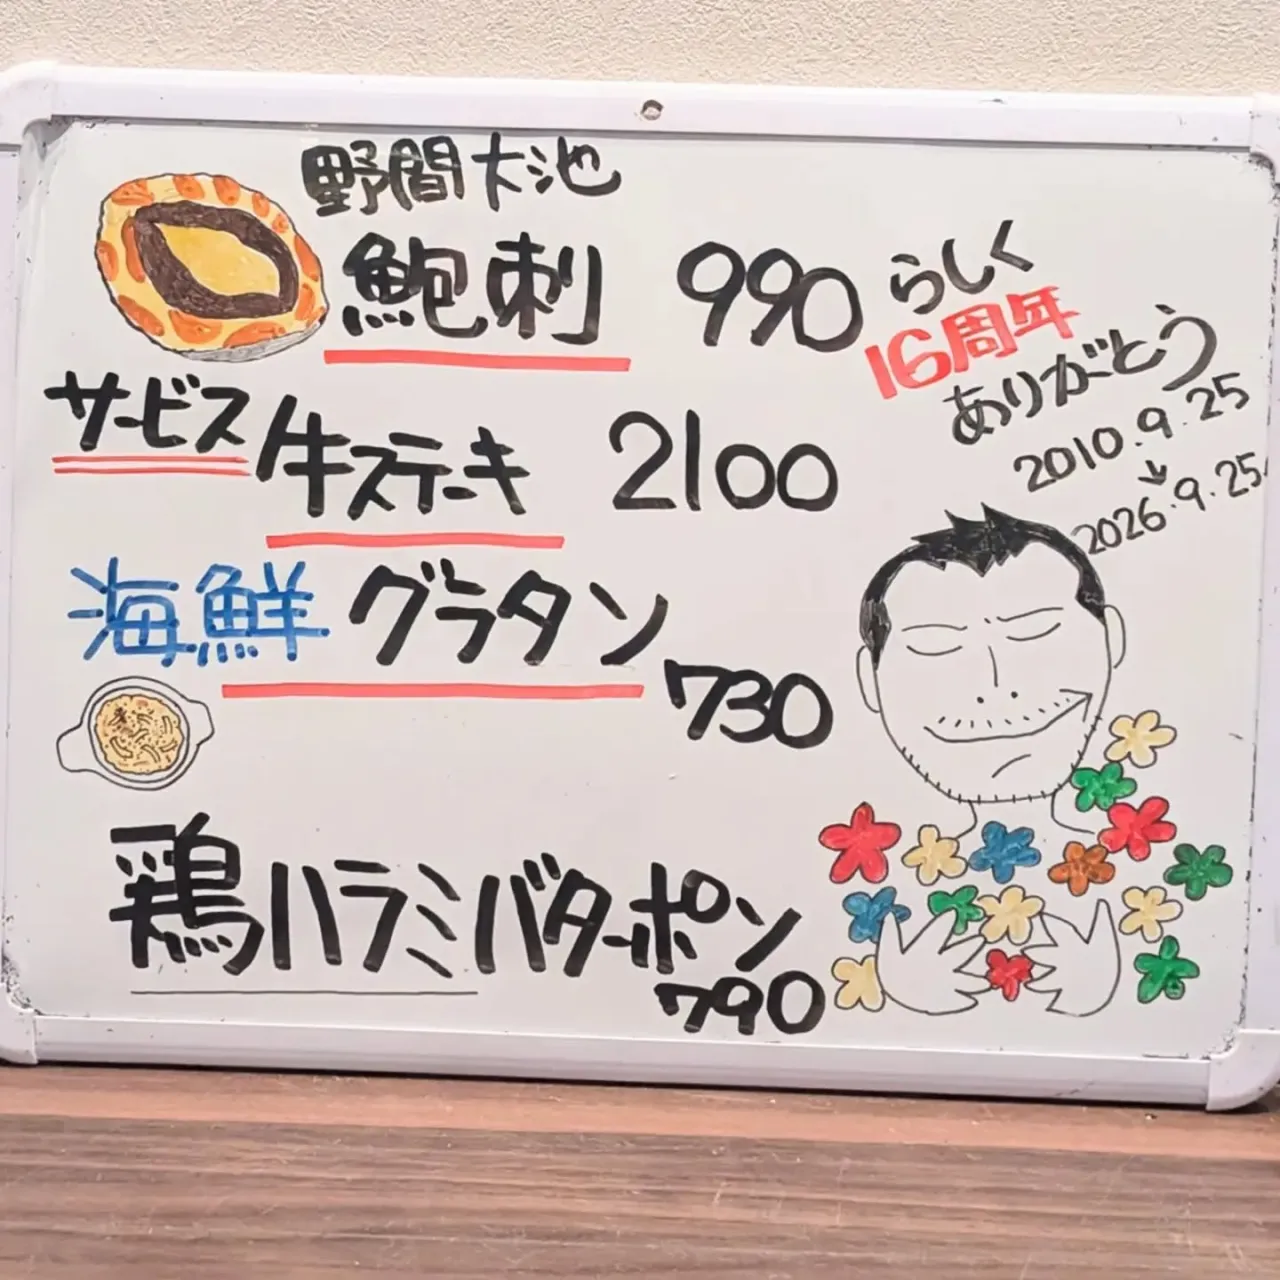 野間大池
鮑刺 990
サービス
牛ステーキ 2100
海鮮グラタン
730
鶏ハラミバターポン
790
らしく
16周年
ありがとう
2010.9.25
↓
2026.9.25.